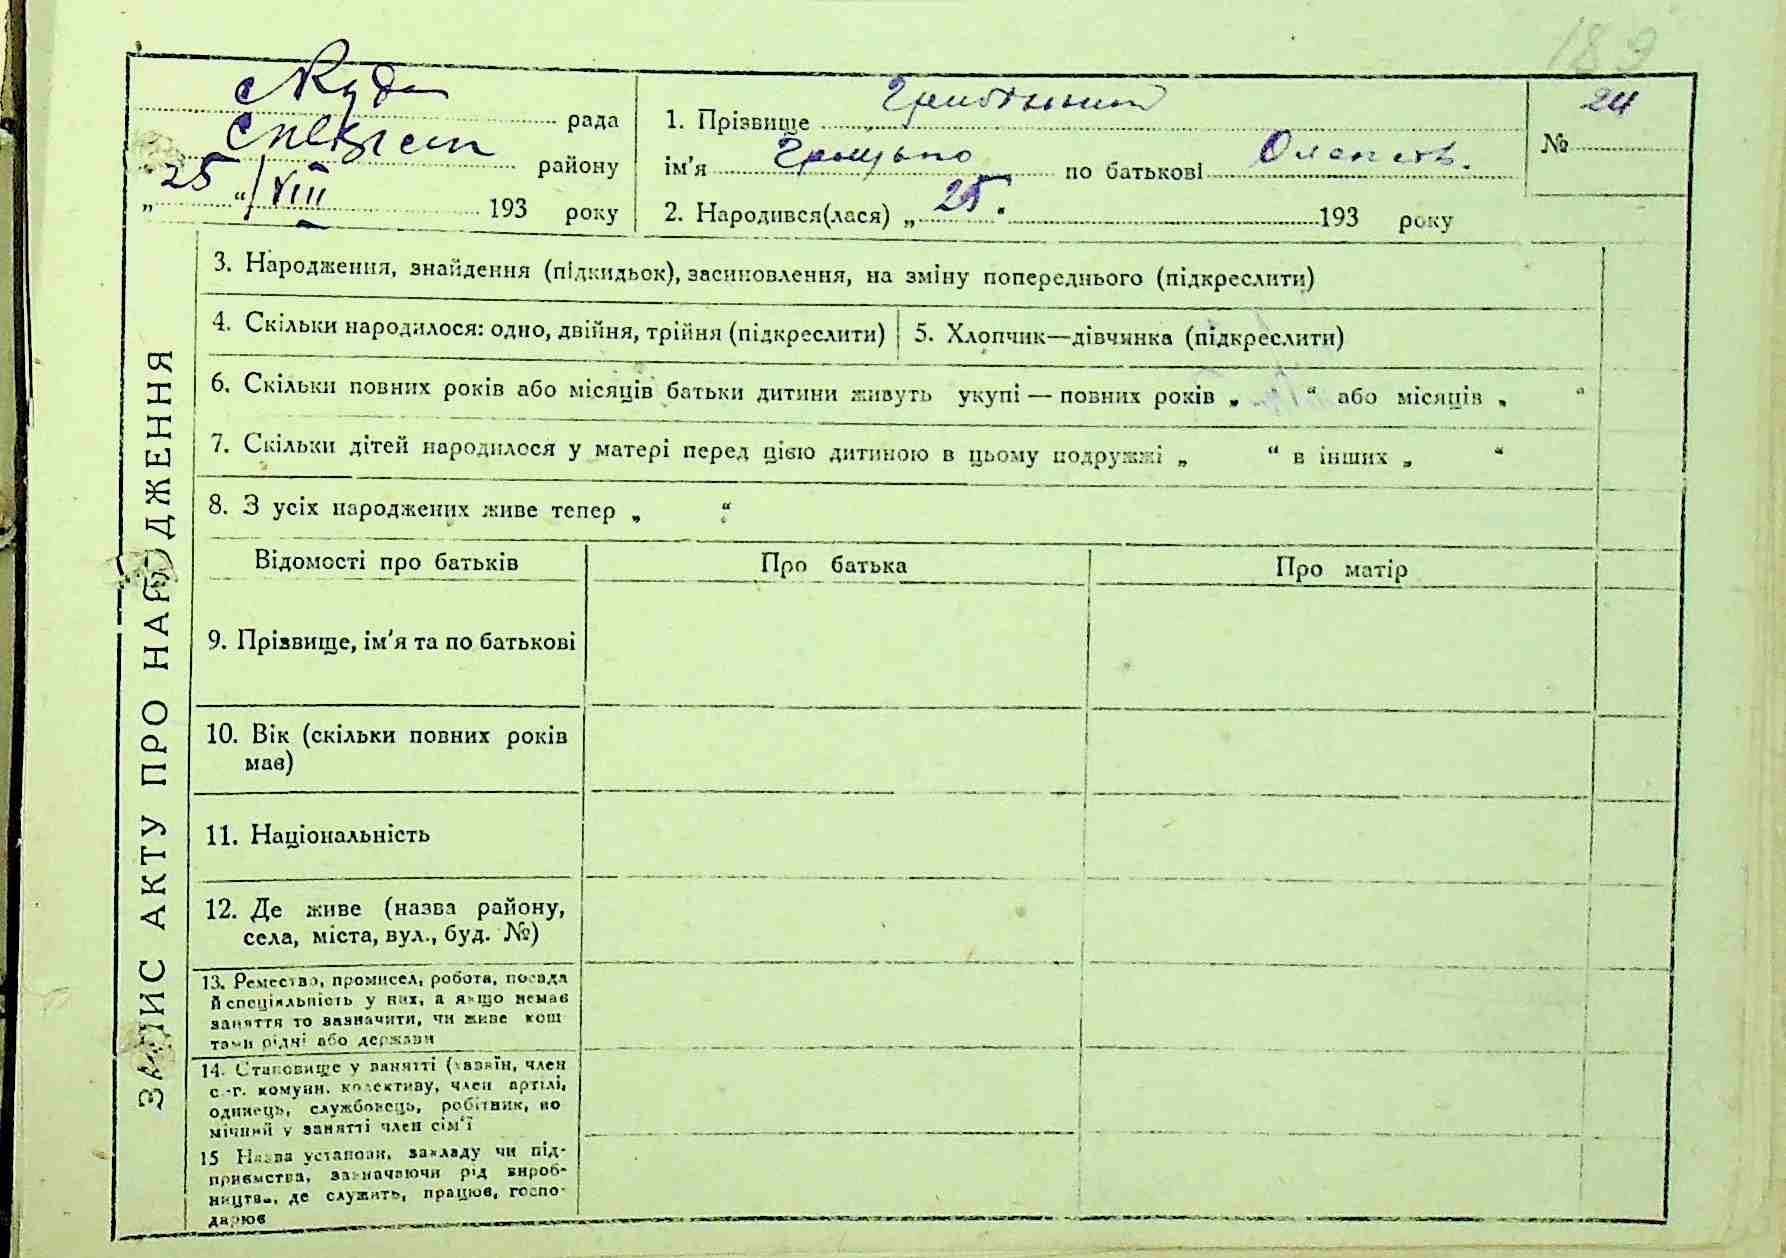 189
с Руда рада
районy
„ 25 “ / VIII 193 року
1. Прізвище
ім'я Грицько по батькові
2. Народився(лася) „ 25. 193 року
№ 24
ЗАПИС АКТУ ПРО НАРОДЖЕННЯ
3. Народження, знайдення (підкидьок), засиновлення, на зміну попереднього (підкреслити)
4. Скільки народилося: одно, двійня, трійня (підкреслити)
5. Хлопчик—дівчинка (підкреслити)
6. Скільки повних років або місяців батьки дитини живуть укупі — повних років „ “ або місяців „ “
7. Скільки дітей народилося у матері перед цією дитиною в цьому подружжі „ “ в інших „ “
8. З усіх народжених живе тепер „ “
Відомості про батьків
Про батька
Про матір
9. Прізвище, ім'я та по батькові
10. Вік (скільки повних років
має)
11. Національність
12. Де живе (назва району,
села, міста, вул., буд. №)
13. Ремество, промисел, робота, посада
й спеціяльність у них, а якщо немає
заняття то зазначити, чи живе кош
тами рідні або держави
14. Становище у занятті (хазяїн, член
с.-г. комуни, колективу, член артілі,
одинець, службовець, робітник, по
мічний у занятті член сім'ї
15 Назва установи, закладу чи під-
приємства, зазначаючи рід вироб-
ництва, де служить, працює, госпо-
дарює